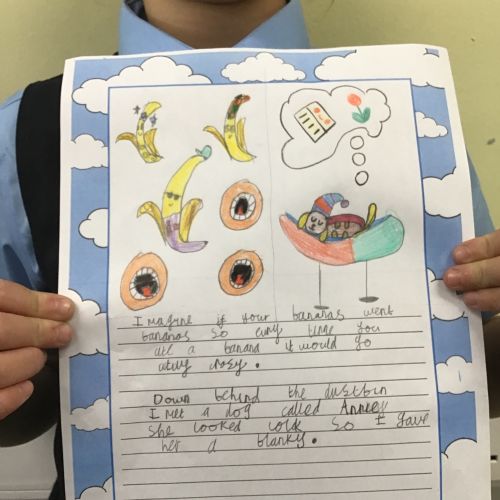 Imagine if your bananas went
bananas so evry time you
ate a banana it would go
crazy.
Down behind the dustbin
I met a dog called Annkey
she looked cold so I gave
her a blanky.